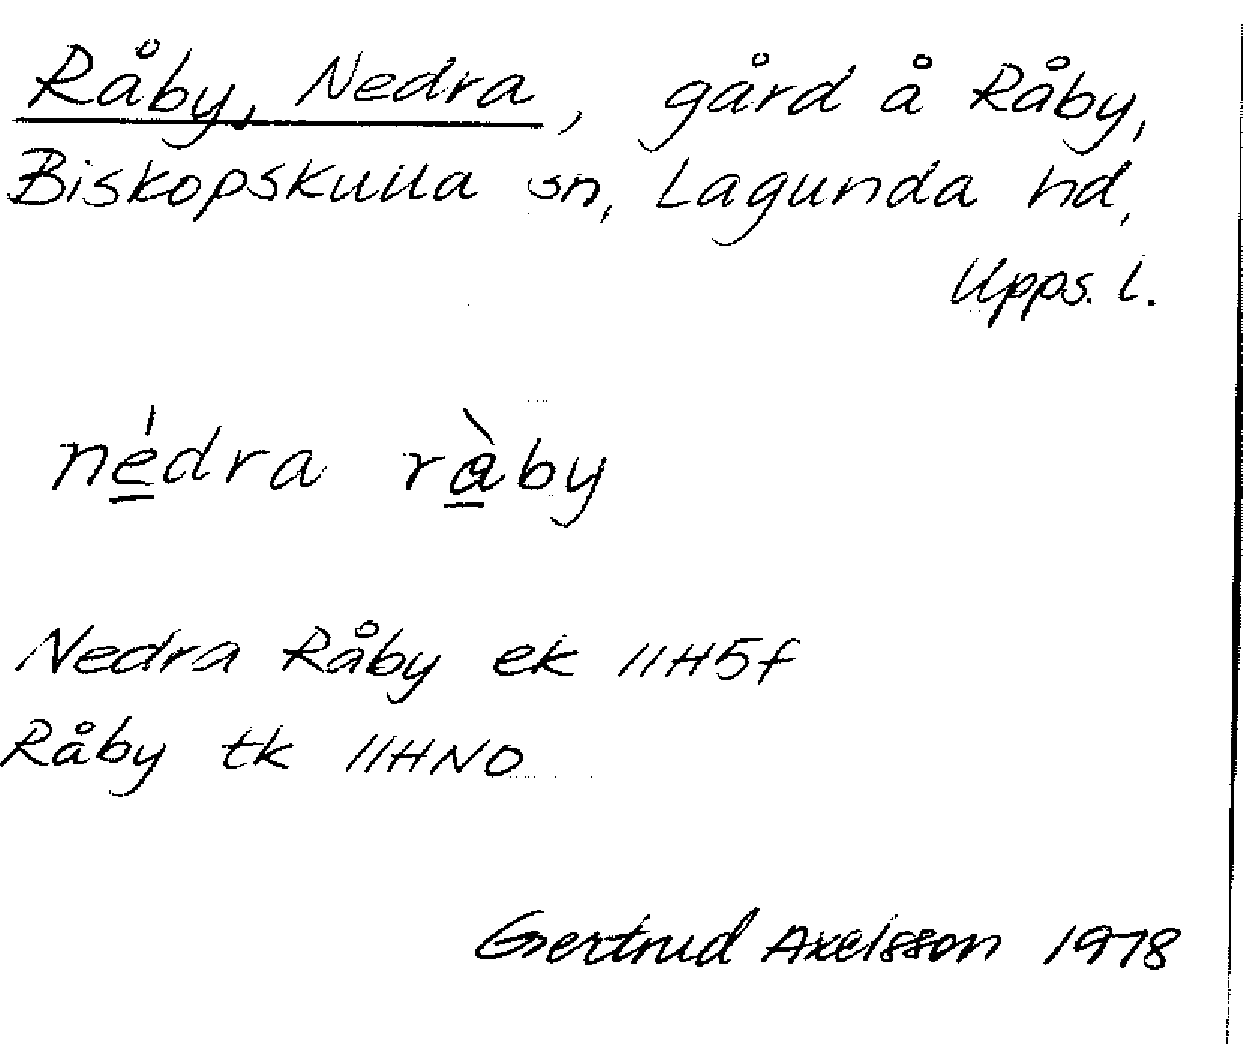 Råby, Nedra, gård å Råby,
Biskopskulla sn, Lagunda hd,
Upps. l.
né̲dra rà̲by
Nedra Råby ek 11H5f
Råby tk 11HNO
Gertrud Axelsson 1978